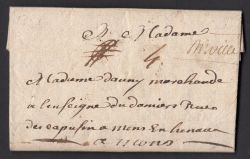 A Madame
4
Madame dauny marchande
a lenseigne du damiers Rue
des capusin a mons En hainau
a mons